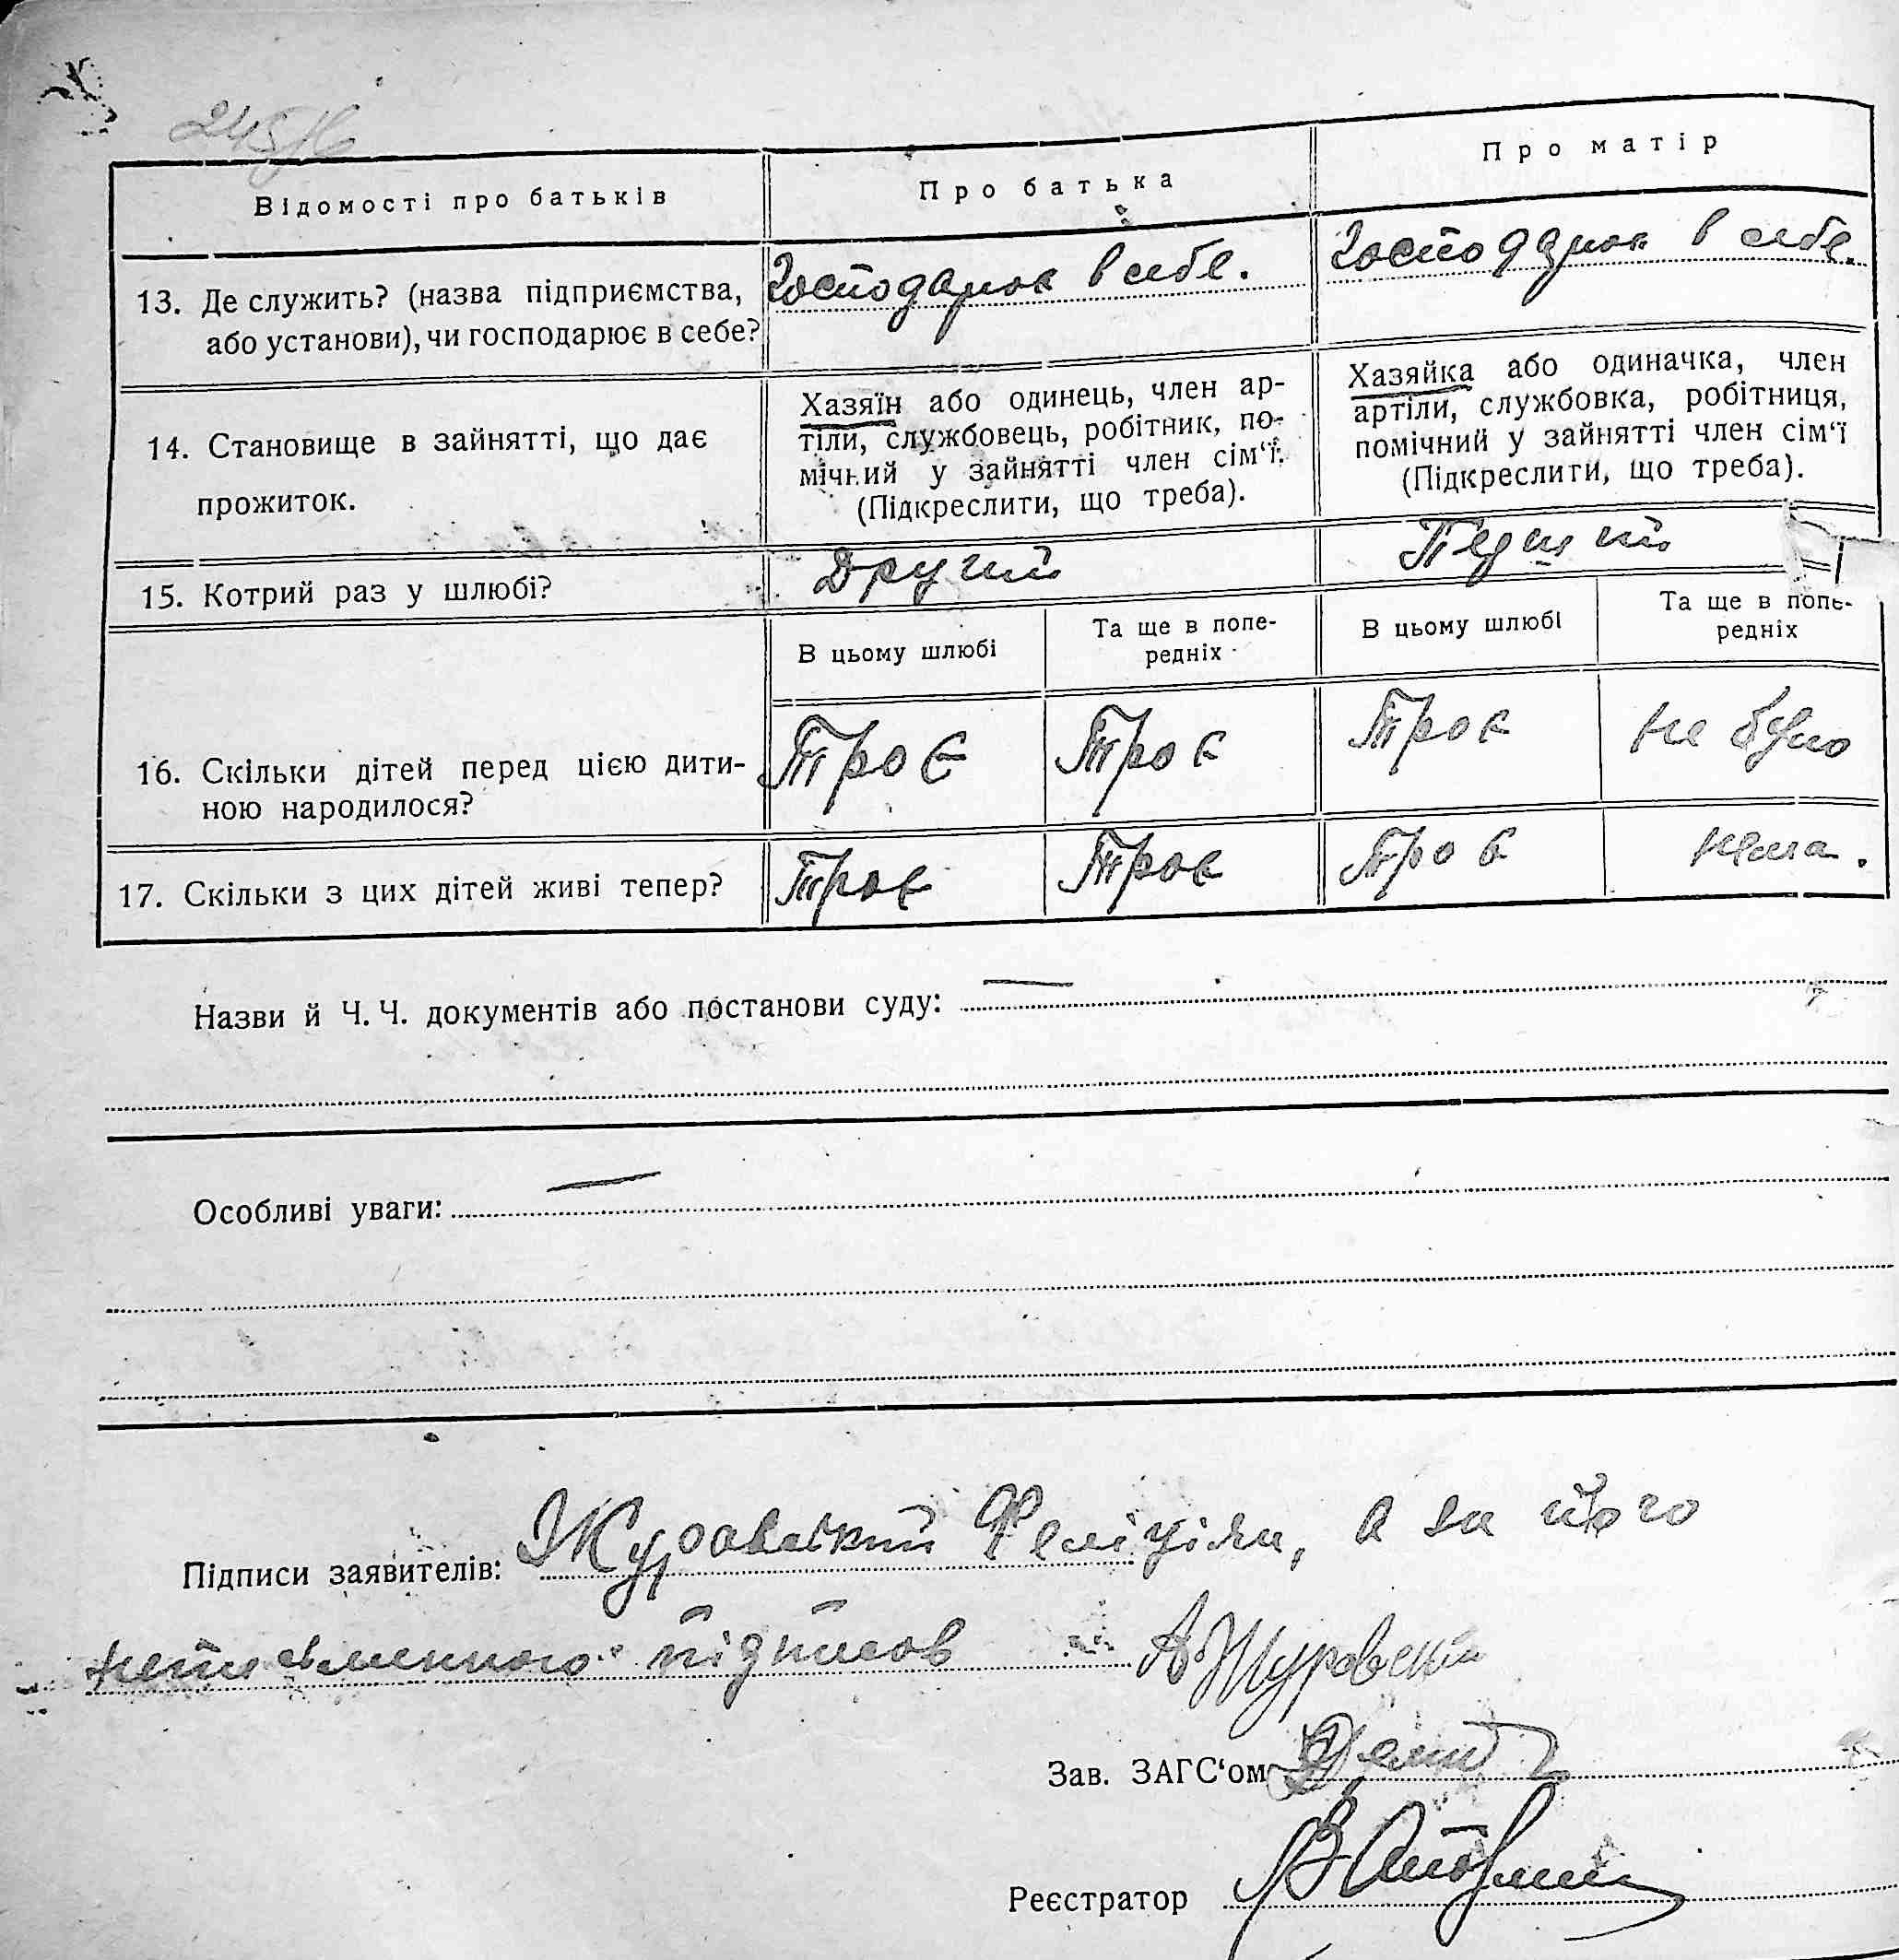 245/6
Відомості про батьків
Про батька
Про матір
13. Де служить? (назва підприємства,
або установи), чи господарює в себе?
Господарює в себе.
Господарює в себе.
14. Становище в зайнятті, що дає
прожиток.
Хазяїн або одинець, член ар-
тіли, службовець, робітник, по-
мічний у зайнятті член сім‘ї.
(Підкреслити, що треба).
Хазяйка або одиначка, член
артіли, службовка, робітниця,
помічний у зайнятті член сім‘ї
(Підкреслити, що треба).
15. Котрий раз у шлюбі?
Другий
В цьому шлюбі
Та ще в попе-
редніх
В цьому шлюбі
Та ще в попе-
редніх
16. Скільки дітей перед цією дити-
ною народилося?
Троє
Троє
Троє
не було
17. Скільки з цих дітей живі тепер?
Троє
Троє
Троє
нема.
Назви й Ч. Ч. документів або постанови суду: —
Особливі уваги: —
Підписи заявителів: Журавський Феліціян, а за його
неписьменного підписов А Журовский
Зав. ЗАГС‘ом
Реєстратор